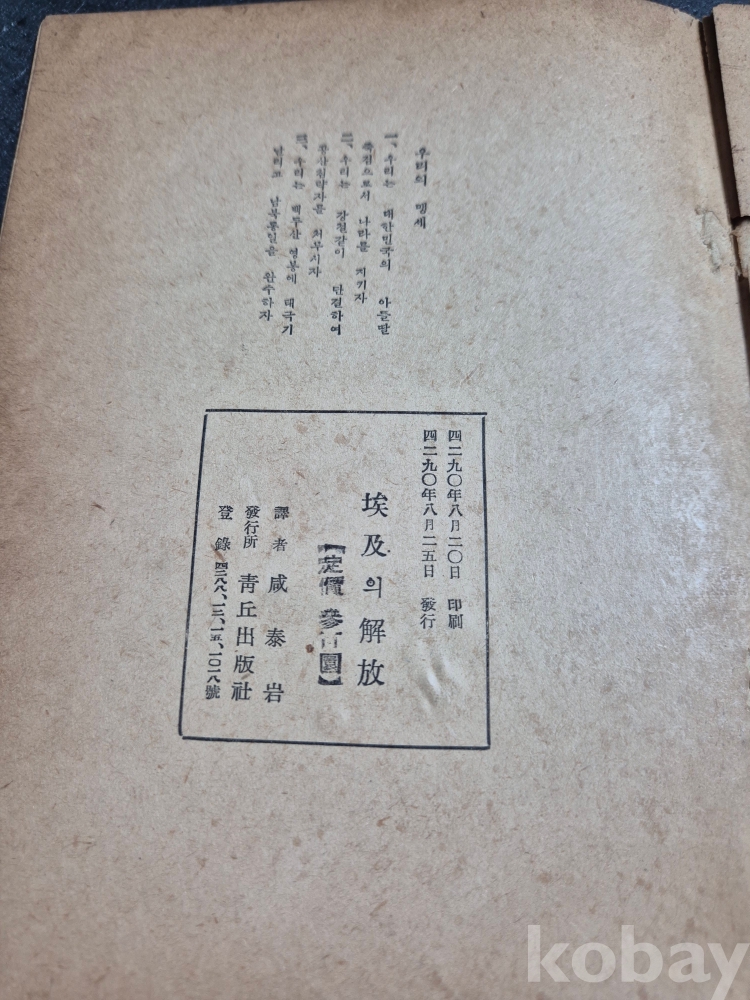 우리의 맹세
一、우리는 대한민국의 아들딸
죽검으로서 나라를 지키자
二、우리는 강철같이 단결하여
공산침략자를 처부시자
三、우리는 백두산 영봉에 태극기
날리고 남북통일을 완수하자
四二九〇年八月二〇日 印刷
四二九〇年八月二五日 發行
埃及의 解放
【定價 參百圜】
譯者 咸泰岩
發行所 靑丘出版社
登錄 四二八八、一二、一五、一〇一八號
kobay